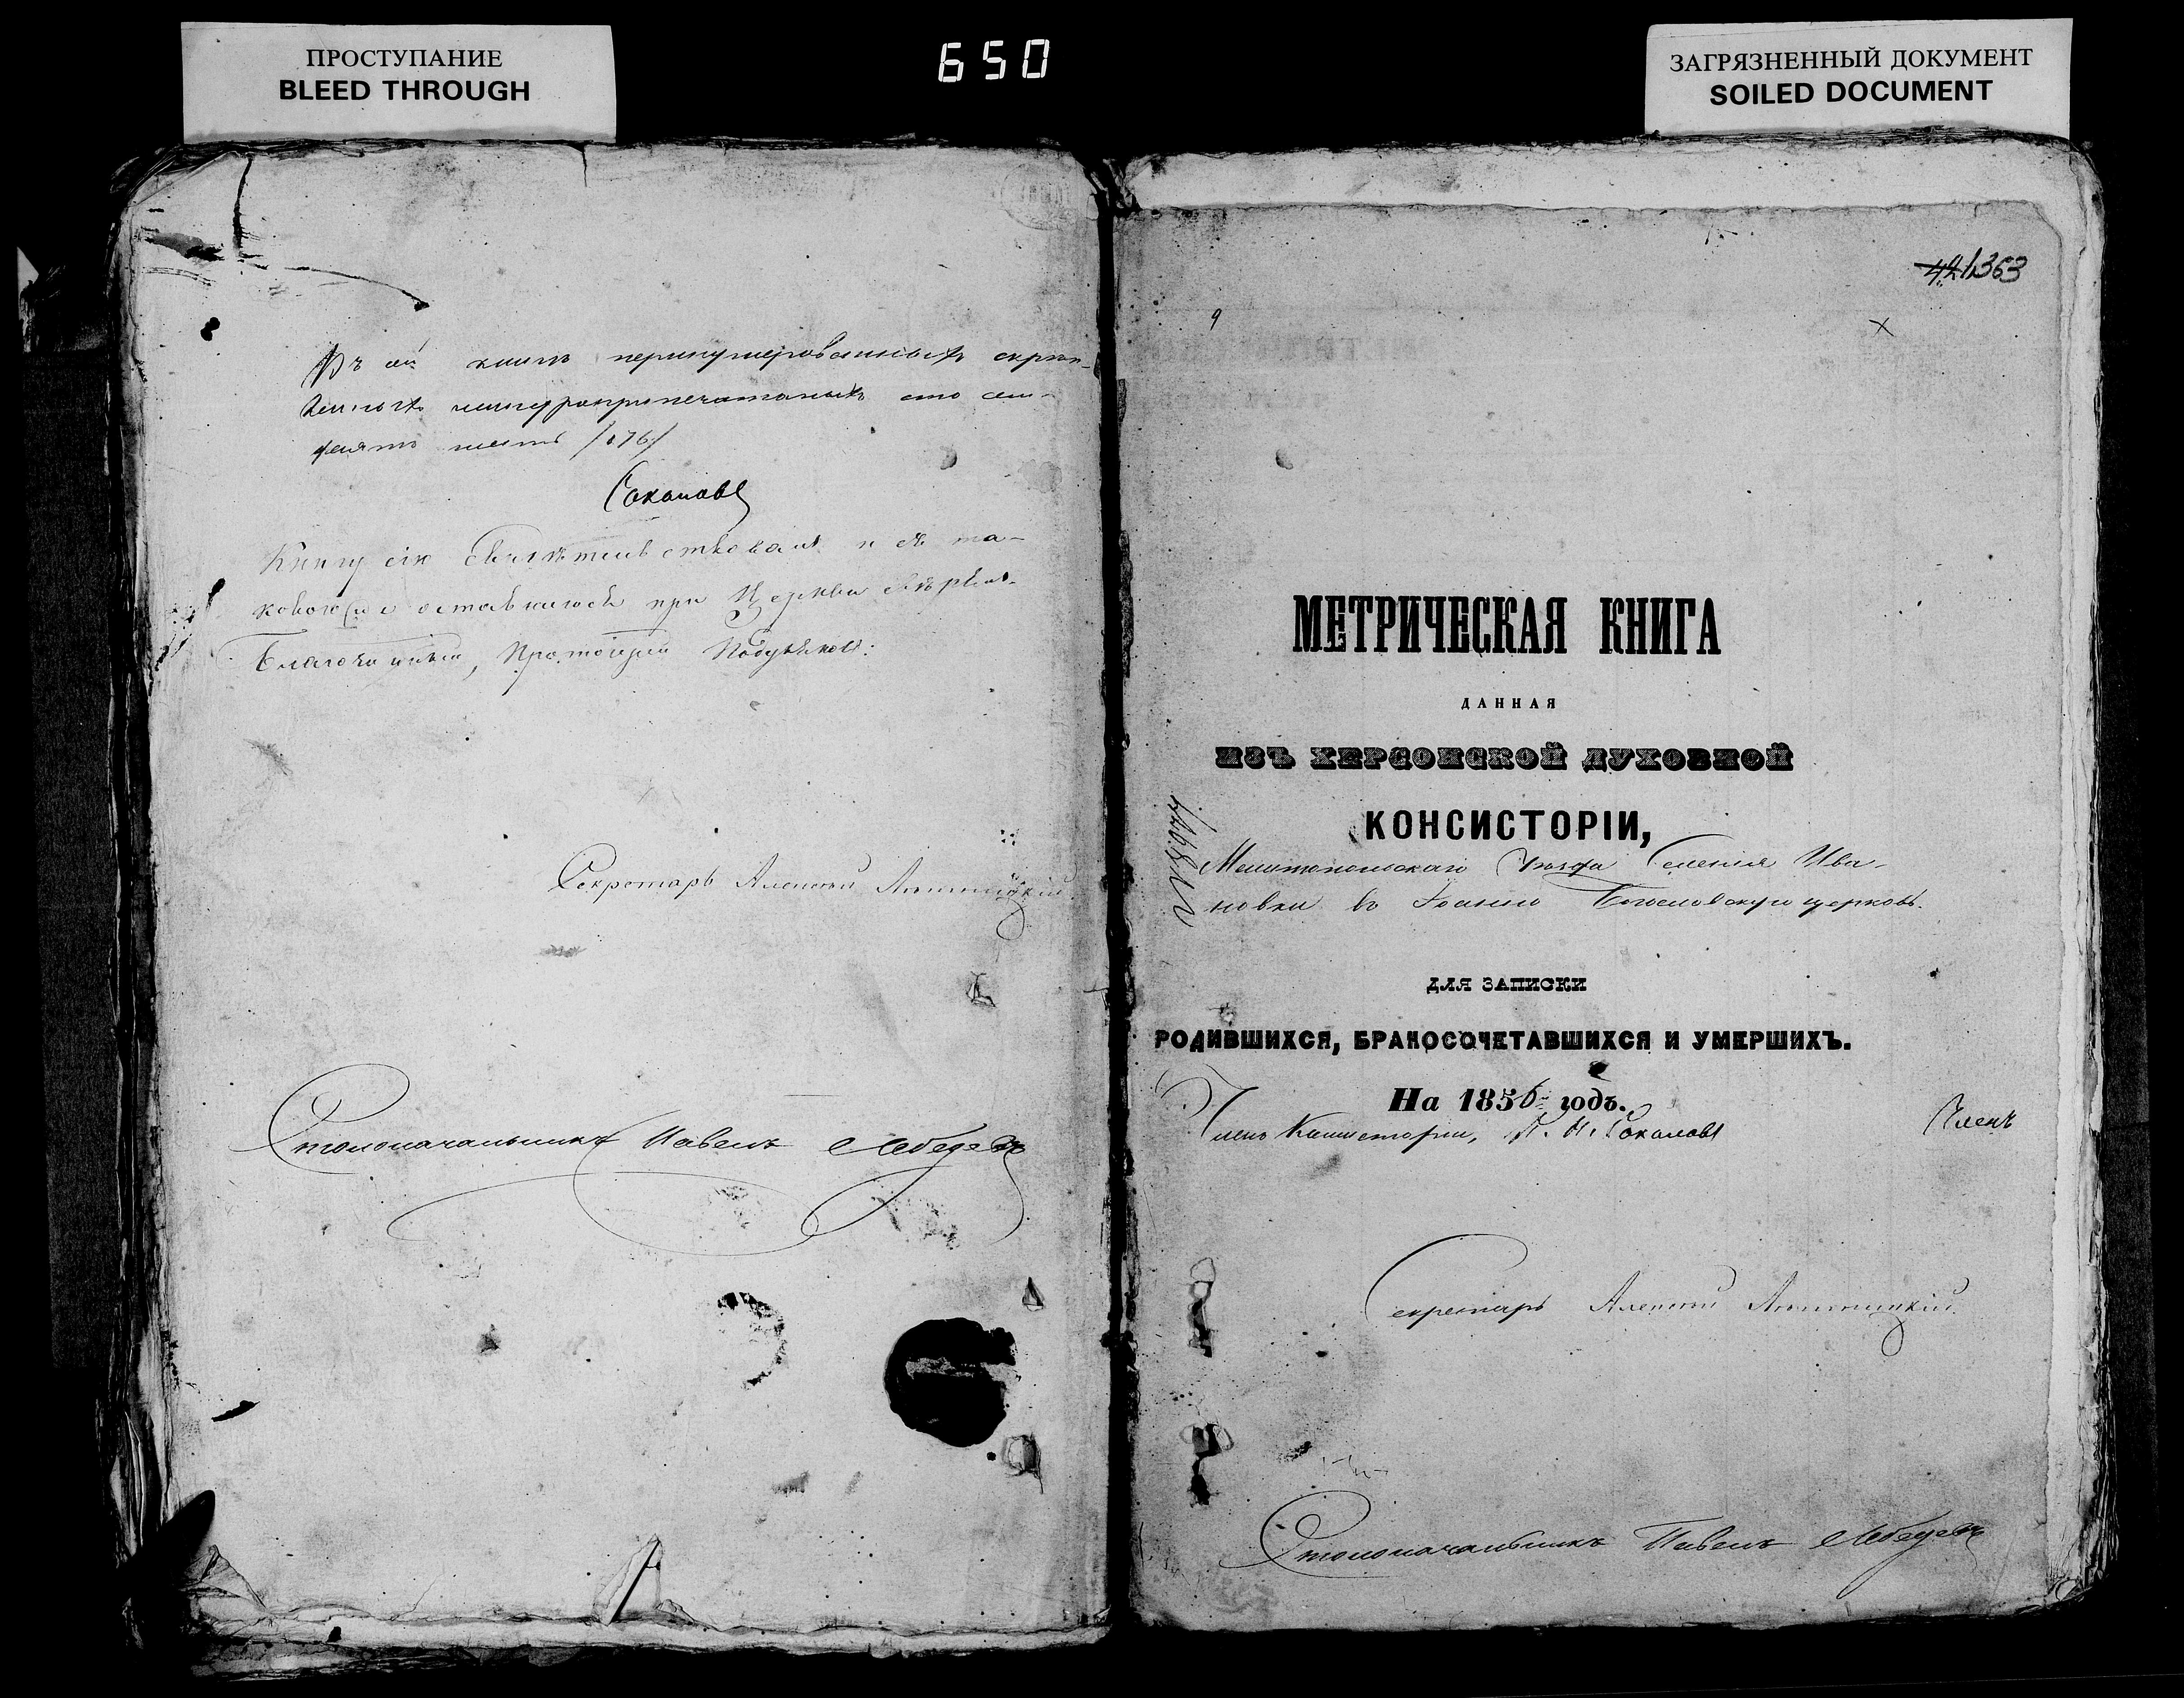 ПРОСТУПАНИЕ
BLEED THROUGH
650
ЗАГРЯЗНЕННЫЙ ДОКУМЕНТ
SOILED DOCUMENT
Въ сей книгѣ перенумерованныхъ скрѣп-
ленныхъ шнуропропечатаныхъ сто семь-
десятъ шесть /176/
Соколовъ
Книгу сію Свидѣтельствовалъ и съ та-
ковою же оставшеюся при Церкви свѣрялъ
Благочинный, Протоіерей
Секретарь Алексѣй
Столоначальникъ Павелъ Лебедевъ
421 363
9
х
МЕТРИЧЕСКАЯ КНИГА
ДАННАЯ
ИЗЪ ХЕРСОНСКОЙ ДУХОВНОЙ
КОНСИСТОРІИ,
Мелитопольскаго Уѣзда Селенія Ива-
новки въ Іоанно Богословскую церковь.
ДЛЯ ЗАПИСКИ
РОДИВШИХСЯ, БРАКОСОЧЕТАВШИХСЯ И УМЕРШИХЪ.
На 1856 годъ.
Членъ Консисторіи, П. И. Соколовъ
Членъ
Секретарь Алексѣй
Столоначальникъ Павелъ Лебедевъ